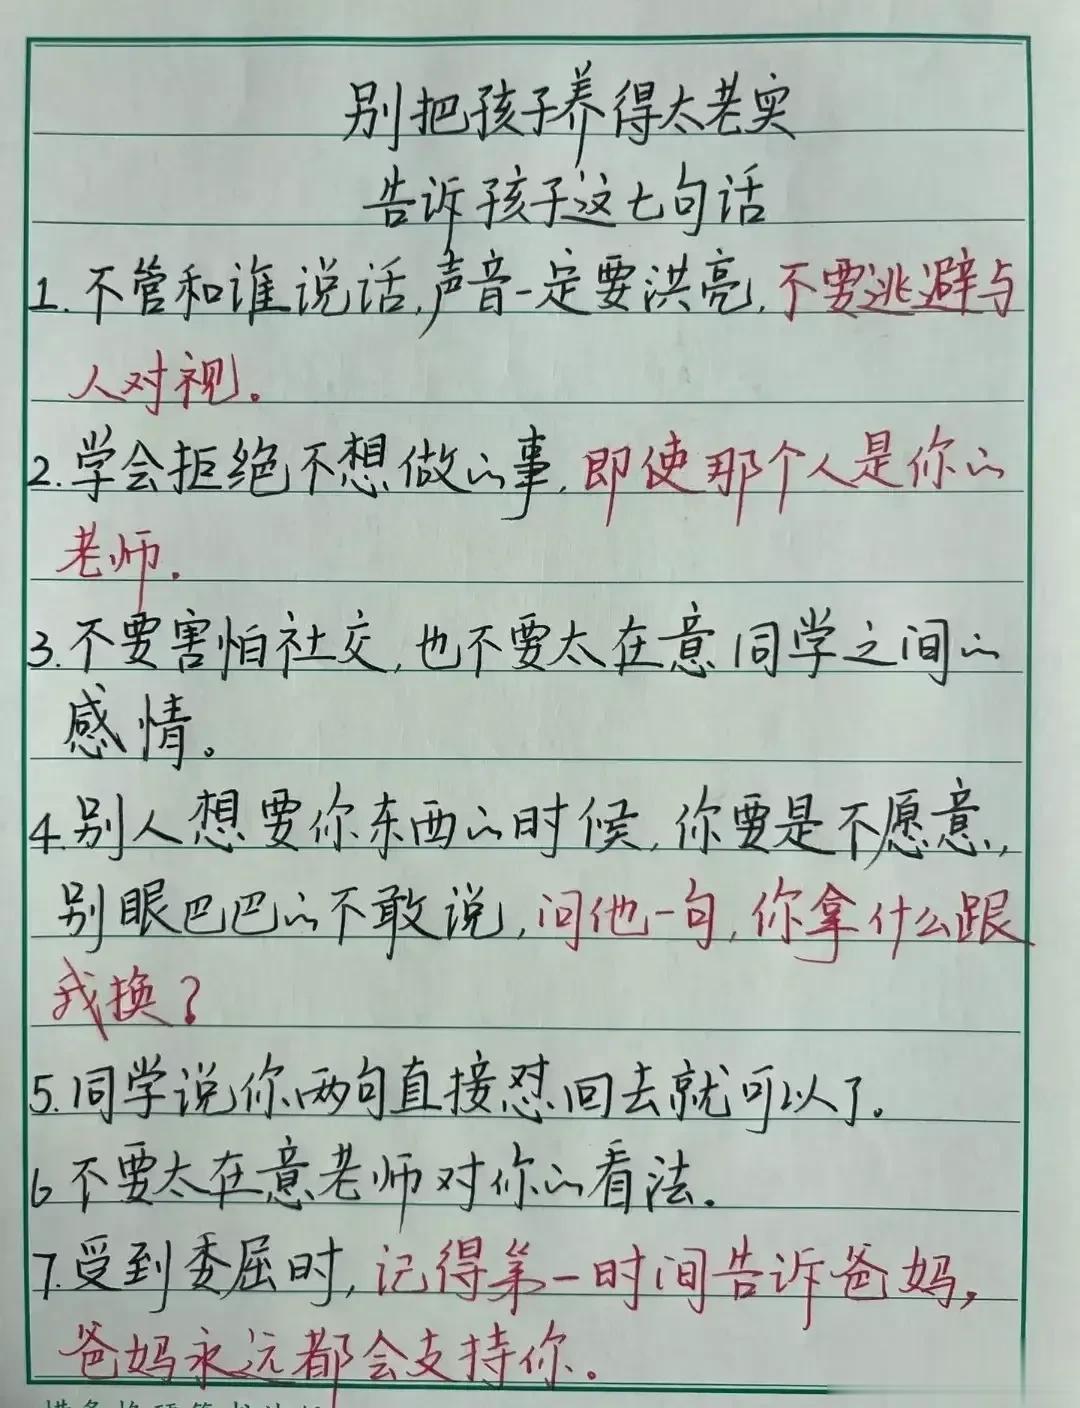 别把孩子养得太老实
告诉孩子这七句话
1.不管和谁说话,声音一定要洪亮,不要逃避与
人对视。
2.学会拒绝不想做的事,即使那个人是你的
老师.
3.不要害怕社交,也不要太在意同学之间的
感情。
4.别人想要你东西的时候,你要是不愿意,
别眼巴巴的不敢说,问他一句,你拿什么跟
我换?
5.同学说你两句直接怼回去就可以了.
6不要太在意老师对你的看法.
7.受到委屈时,记得第一时间告诉爸妈,
爸妈永远都会支持你.。